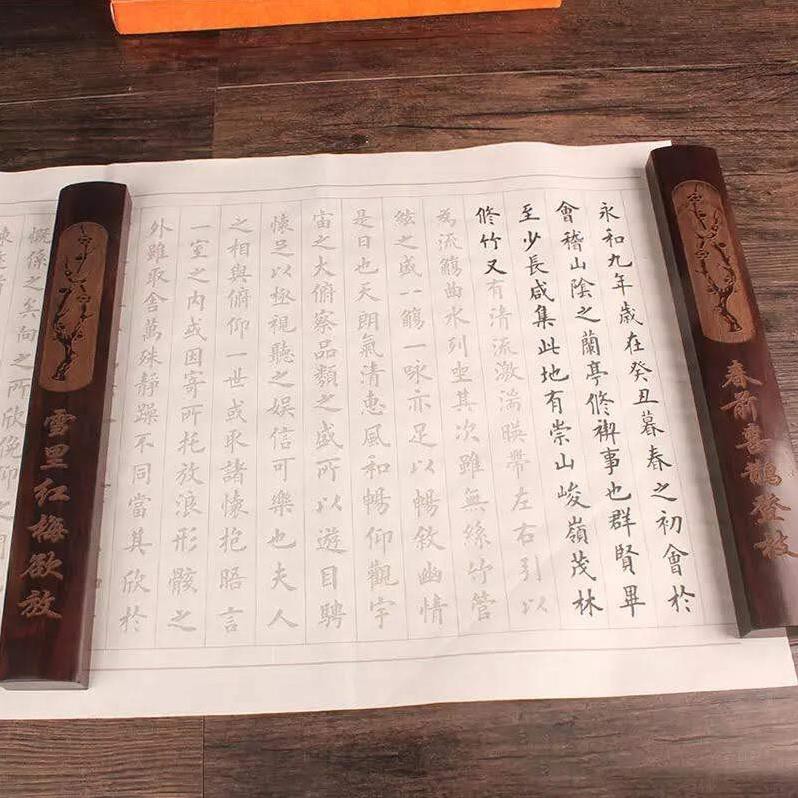 春前喜鵲登枝
永和九年歲在癸丑暮春之初會於
會稽山陰之蘭亭修禊事也群賢畢
至少長咸集此地有崇山峻嶺茂林
修竹又有清流激湍暎帶左右引以
為流觴曲水列坐其次雖無絲竹管
絃之盛一觴一詠亦足以暢敘幽情
是日也天朗氣清惠風和暢仰觀宇
宙之大俯察品類之盛所以遊目騁
懷足以極視聽之娛信可樂也夫人
之相與俯仰一世或取諸懷抱晤言
一室之内或因寄所托放浪形骸之
外雖取舍萬殊靜躁不同當其欣於
雪里红梅欲放
慨係之矣向之所欣俛仰之